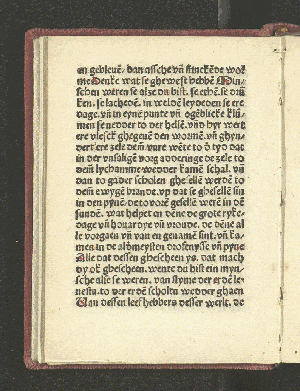 en gebleuē. dan assche vñ stinckēde wor
me Dencke wat se ghewest hebbē Min-
schen weren se alze du bist. se ethē. se drū
ken. se lacheden. in weldē leyoeden se ere
dage. vñ in eynē punte vñ ogēblicke
men se nedder to der hellē. vñ hyr wert
ere vlesck ghegeuē den wormē. vñ
dert ere zele dem vure wēte to d tyd dat
in der vnsaligē vorgadderinge de zele to
dem lychamme wedder kamē schal. vñ
dan to gader scholen ghesellē werdē to
dem ewygē brande. vp dat se ghesellē sin
in den pynē. de to vorē gesellē werē in dē
sundē. wat helpet en dēne de grote ryke-
dage vñ houardye vñ vroude. de dēne al
le vorgaen vñ van en genamē sint. vñ ka-
men in de aldmeysten drofenysse vñ pyne
Alle dat dessen ghescheen ys. dat mach
dy ok gheschēen. wente du bist ein myn
sche alse se weren. van slyme der erdē le-
uestu. to der erdē scholtu wedder ghaen
Van dessen leefhebbers desser werlt. de